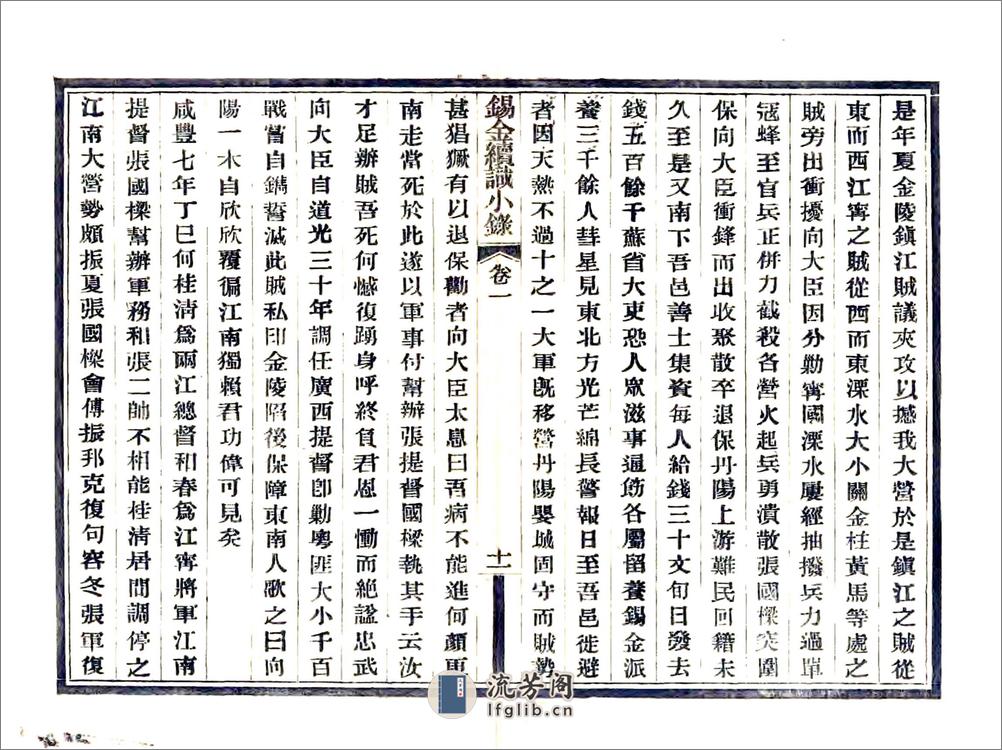 是年夏金陵鎮江賊議夾攻以撼我大營於是鎮江之賊從
東而西江寧之賊從西而東溧水大小關金柱黃馬等處之
賊旁出衝擾向大臣因分勦寧國溧水屢經抽撥兵力過單
寇蜂至官兵正併力截殺各營火起兵勇潰散張國樑突圍
保向大臣衝鋒而出收聚散卒退保丹陽上游難民回籍未
久至是又南下吾邑善士集資每人給錢三十文旬日發去
錢五百餘千蘇省大吏恐人眾滋事通飭各屬留養錫金派
養三千餘人彗星見東北方光芒綿長警報日至吾邑徙避
者因天熱不過十之一大軍旣移營丹陽嬰城固守而賊勢
錫金續識小錄
卷一
十一
甚猖獗有以退保勸者向大臣太息曰吾病不能進何顏更
南走當死於此遂以軍事付幫辦張提督國樑執其手云汝
才足辦賊吾死何憾復踴身呼終負君恩一慟而絕諡忠武
向大臣自道光三十年調任廣西提督卽勦粵匪大小千百
戰嘗自鐫誓滅此賊私印金陵陷後保障東南人歌之曰向
陽一木自欣欣覆徧江南獨賴君功偉可見矣
咸豐七年丁巳何桂清爲兩江總督和春爲江寧將軍江南
提督張國樑幫辦軍務和張二帥不相能桂清居間調停之
江南大營勢頗振夏張國樑會傅振邦克復句容冬張軍復
流芳阁
lfglib.cn